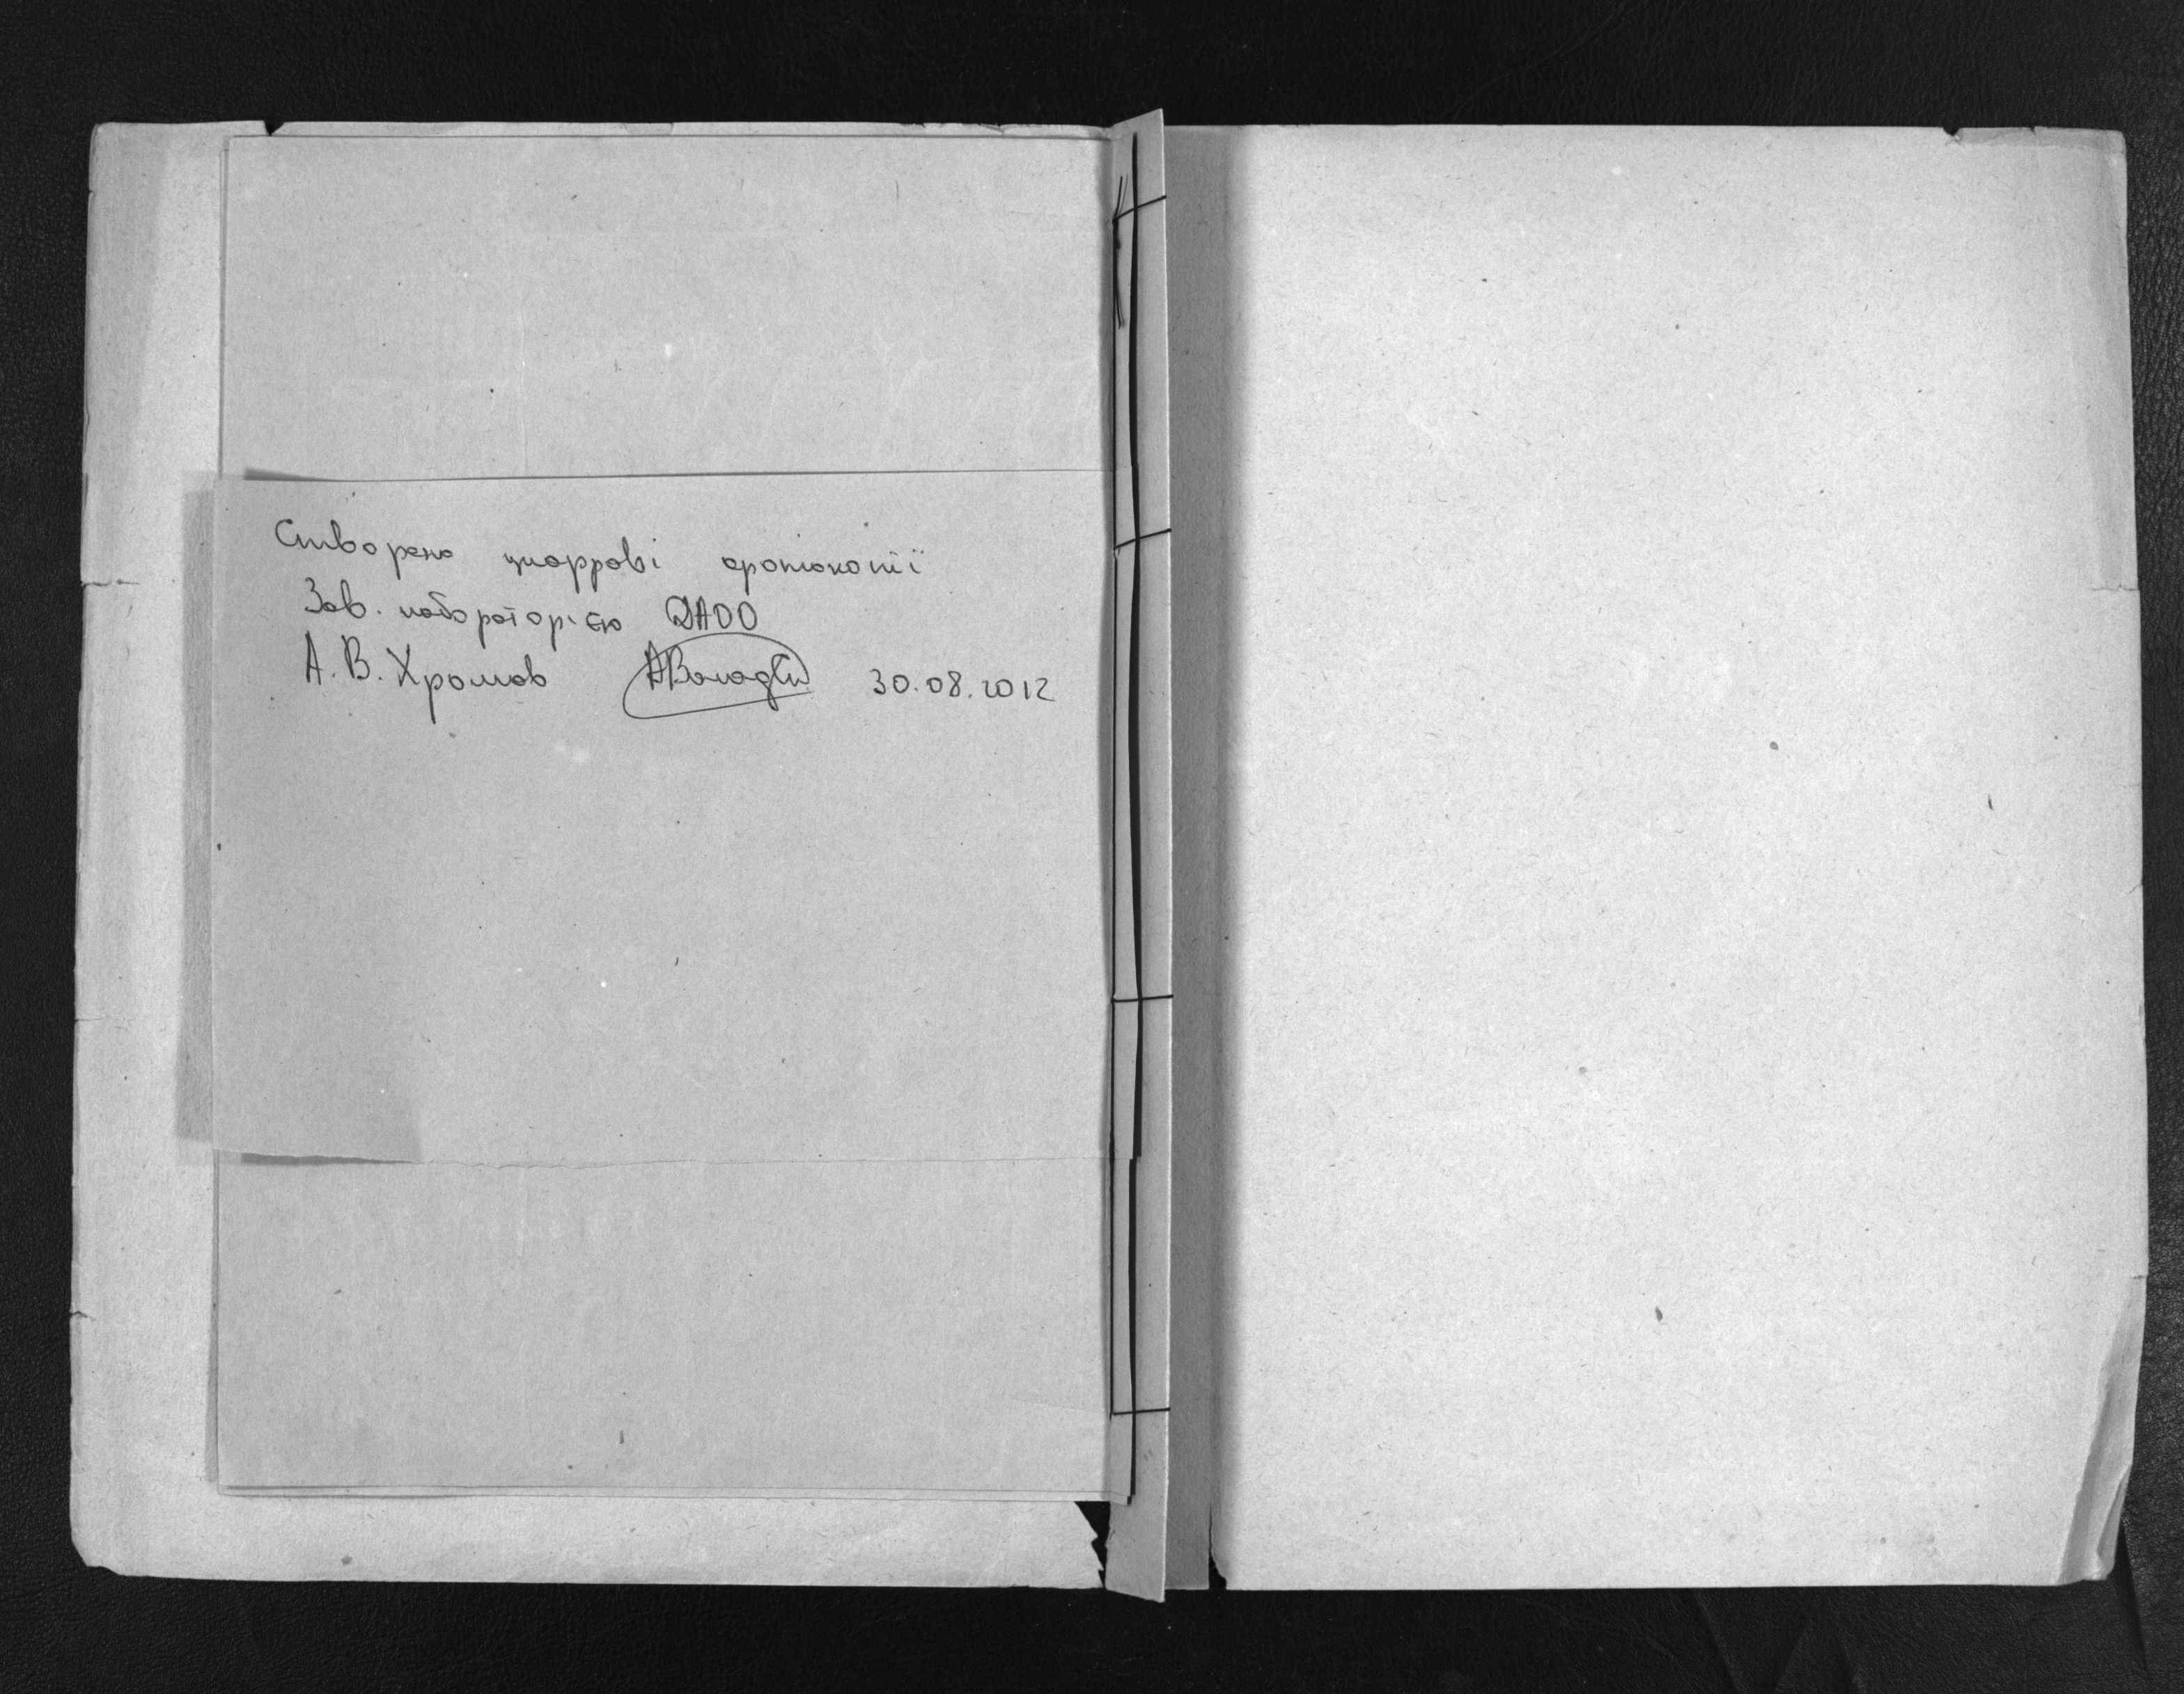 Створено цифрові фотокопії
Зав. лабораторією ДАОО
А.В. Хромов 30.08.2012